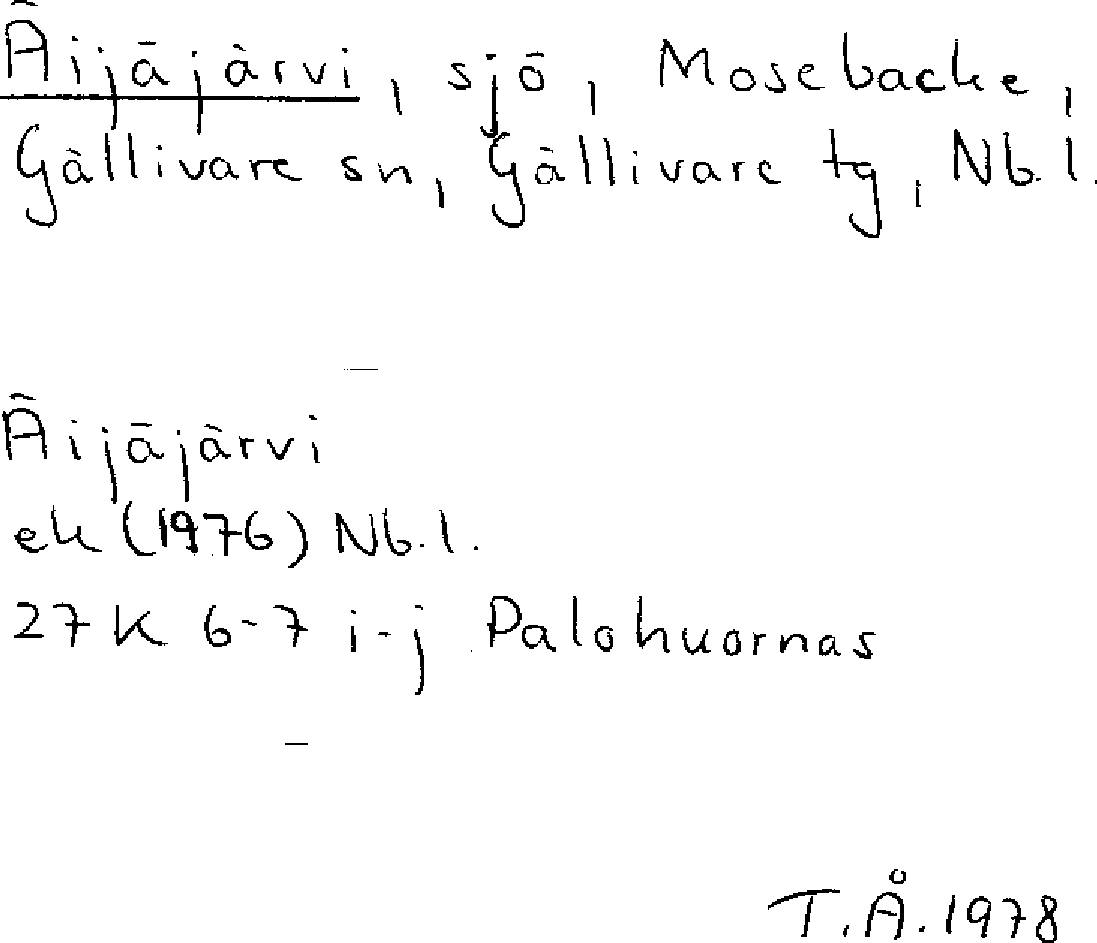 Äijäjärvi, sjö, Mosebacke,
Gällivare sn, Gällivare tg, Nb.l.
Äijäjärvi
ek (1976) Nb.l.
27 K 6-7 i-j Palohuornas
T.Å. 1978